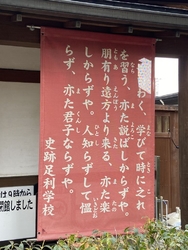 わく、学びて時に之れ
を習う、亦た説ばしからずや。
朋有り遠方より来る、亦た楽
しからずや。人知らずして慍
らず、亦た君子ならずや。
史跡足利学校
は9時から
館しました